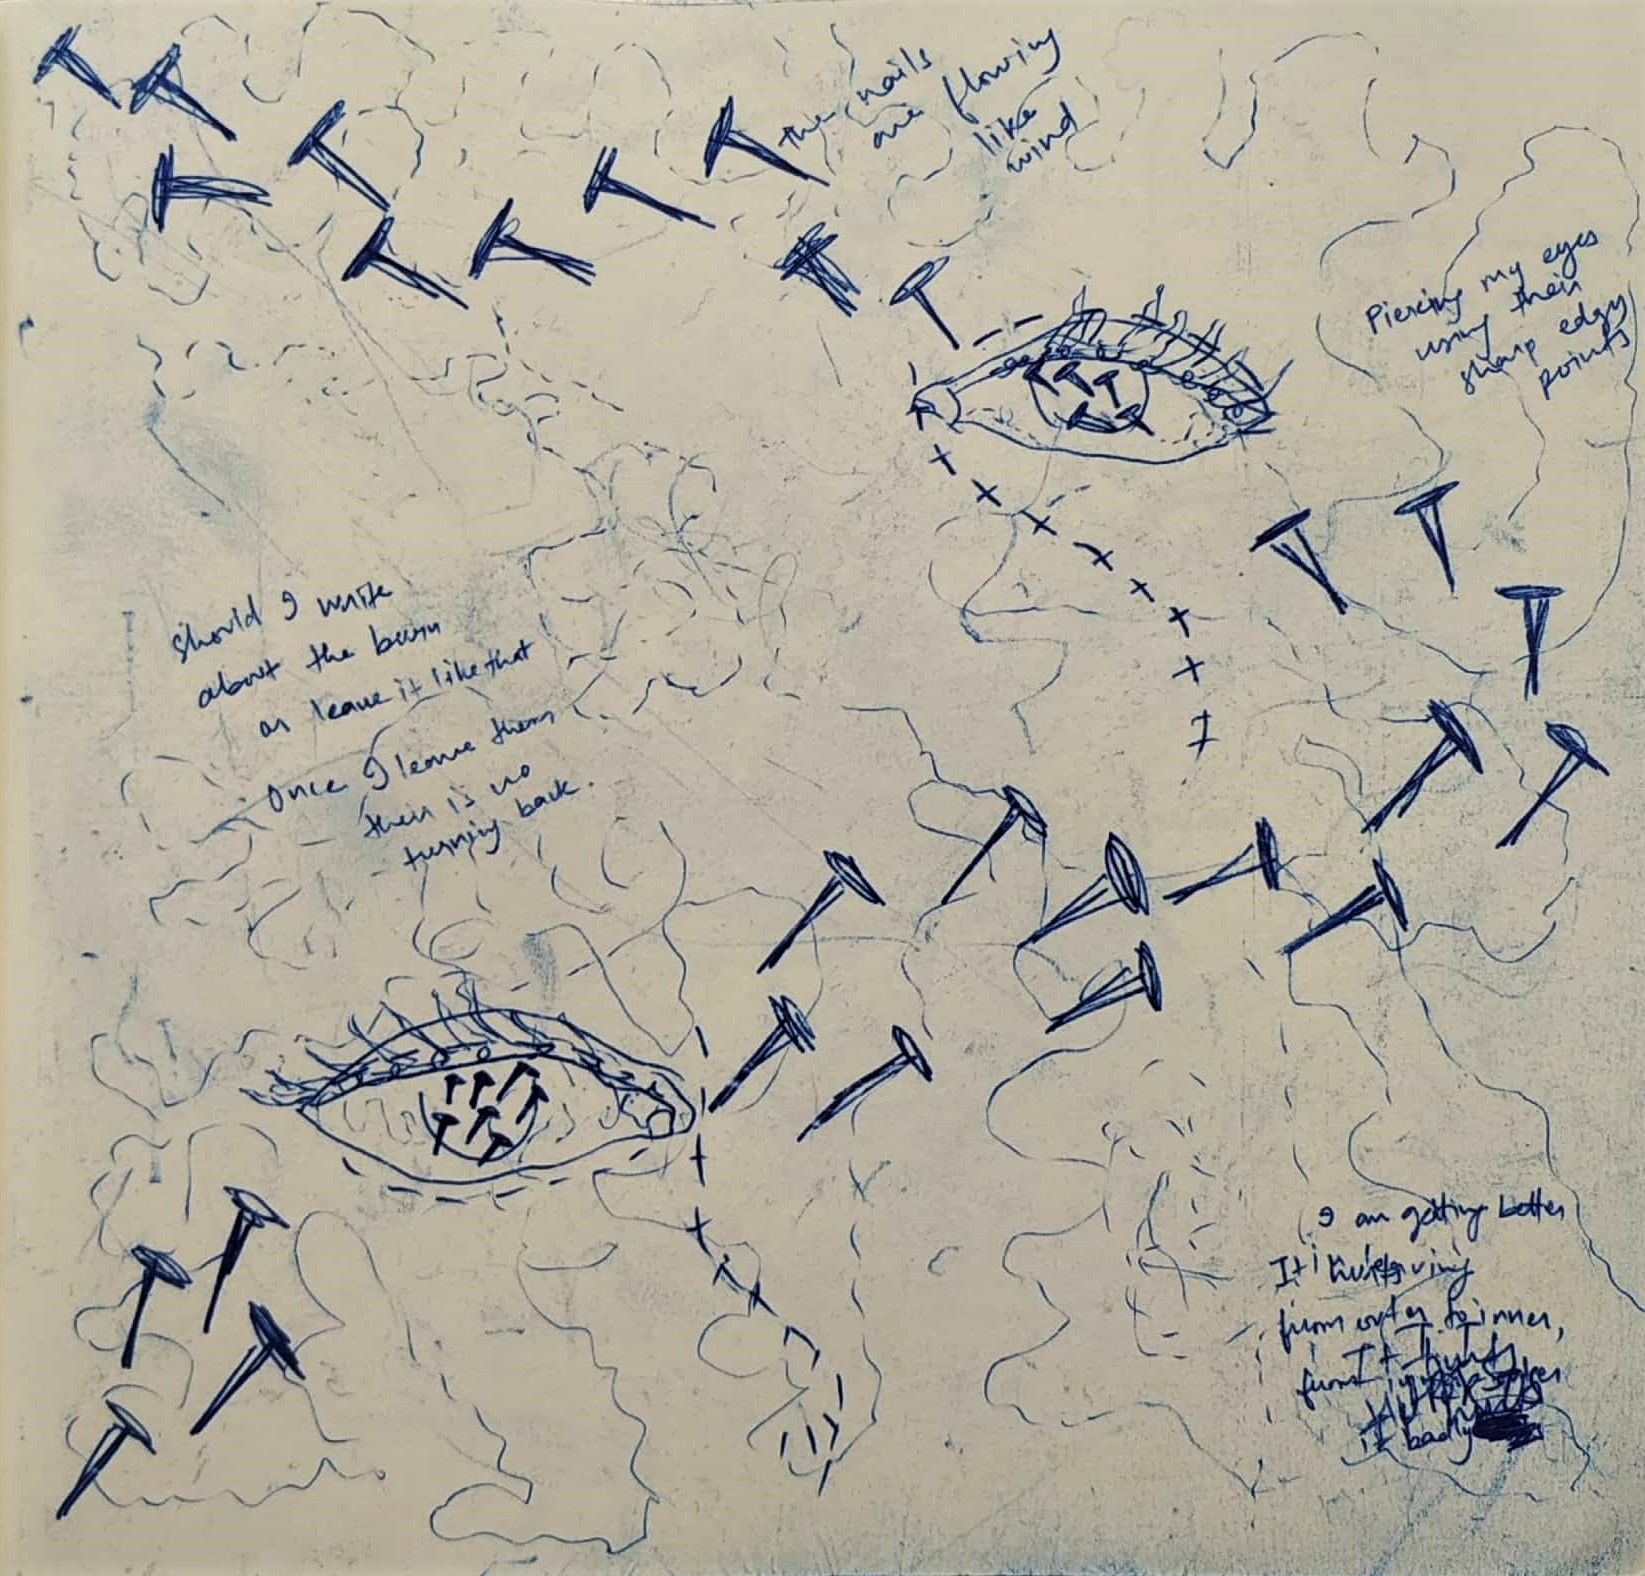 the nails
are flowing
like
wind
Piercing my eyes
using their
sharp edgy
points
Should I write
about the burn
or leave it like that
Once I leave them
then is no
turning back.
I am getting better
It
from outer to inner,
from
It hurts
it badly